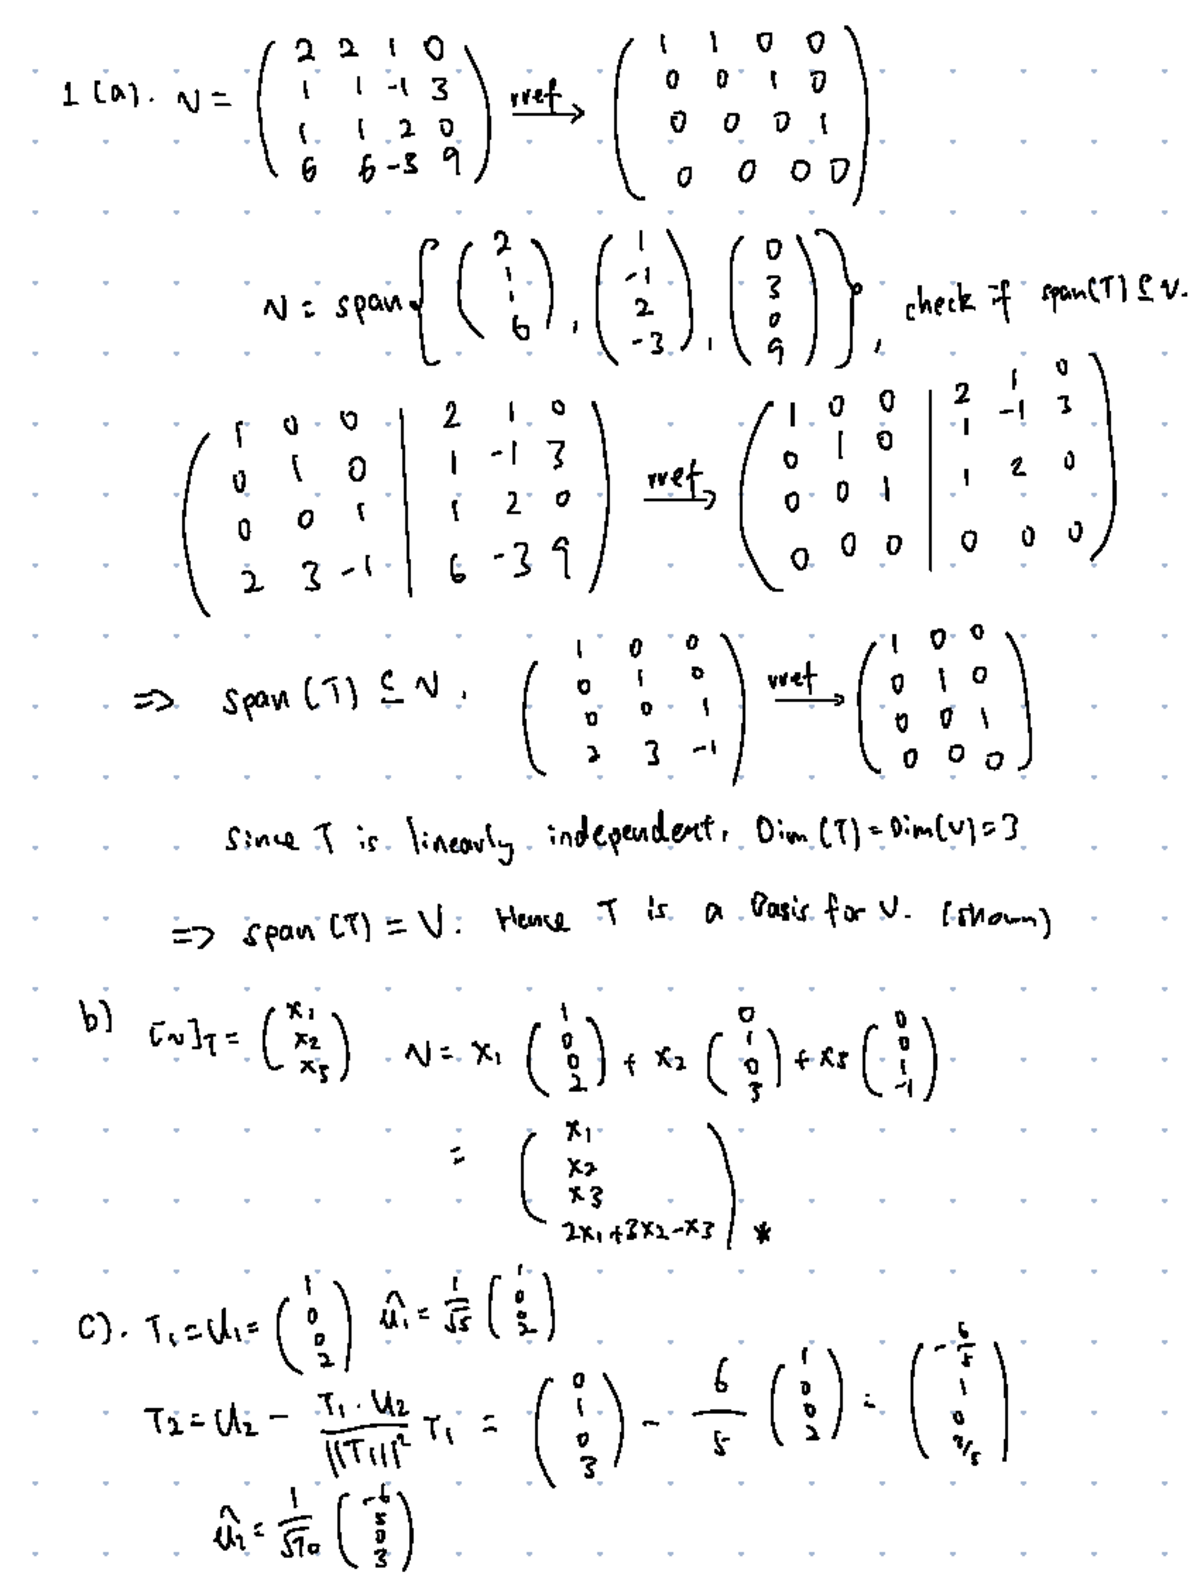 1(a). N = ( 2 2 1 0 ; 1 1 -1 3 ; 1 1 2 0 ; 6 6 -3 9 ) rref→ ( 1 1 0 0 ; 0 0 1 0 ; 0 0 0 1 ; 0 0 0 0 )
N = span { ( 2 ; 1 ; 1 ; 6 ), ( 1 ; -1 ; 2 ; -3 ), ( 0 ; 3 ; 0 ; 9 ) }, check if span(T) ⊆ V.
( 1 0 0 | 2 1 0 ; 0 1 0 | 1 -1 3 ; 0 0 1 | 1 2 0 ; 2 3 -1 | 6 -3 9 ) rref→ ( 1 0 0 | 2 1 0 ; 0 1 0 | 1 -1 3 ; 0 0 1 | 1 2 0 ; 0 0 0 | 0 0 0 )
=> span (T) ⊆ N. ( 1 0 0 ; 0 1 0 ; 0 0 1 ; 2 3 -1 ) rref→ ( 1 0 0 ; 0 1 0 ; 0 0 1 ; 0 0 0 )
Since T is linearly independent, Dim (T) = Dim(V) = 3
=> span (T) = V. Hence T is a Basis for V. (shown)
b) [N]T = ( x1 ; x2 ; x3 ) N = x1 ( 1 ; 0 ; 0 ; 2 ) + x2 ( 0 ; 1 ; 0 ; 3 ) + x3 ( 0 ; 0 ; 1 ; -1 )
= ( x1 ; x2 ; x3 ; 2x1+3x2-x3 ) *
C). T1 = U1 = ( 1 ; 0 ; 0 ; 2 ) û1 = 1/√5 ( 1 ; 0 ; 0 ; 2 )
T2 = U2 - T1·U2/||T1||² T1 = ( 0 ; 1 ; 0 ; 3 ) - 6/5 ( 1 ; 0 ; 0 ; 2 ) = ( -6/5 ; 1 ; 0 ; 3/5 )
û2 = 1/√70 ( -6 ; 5 ; 0 ; 3 )